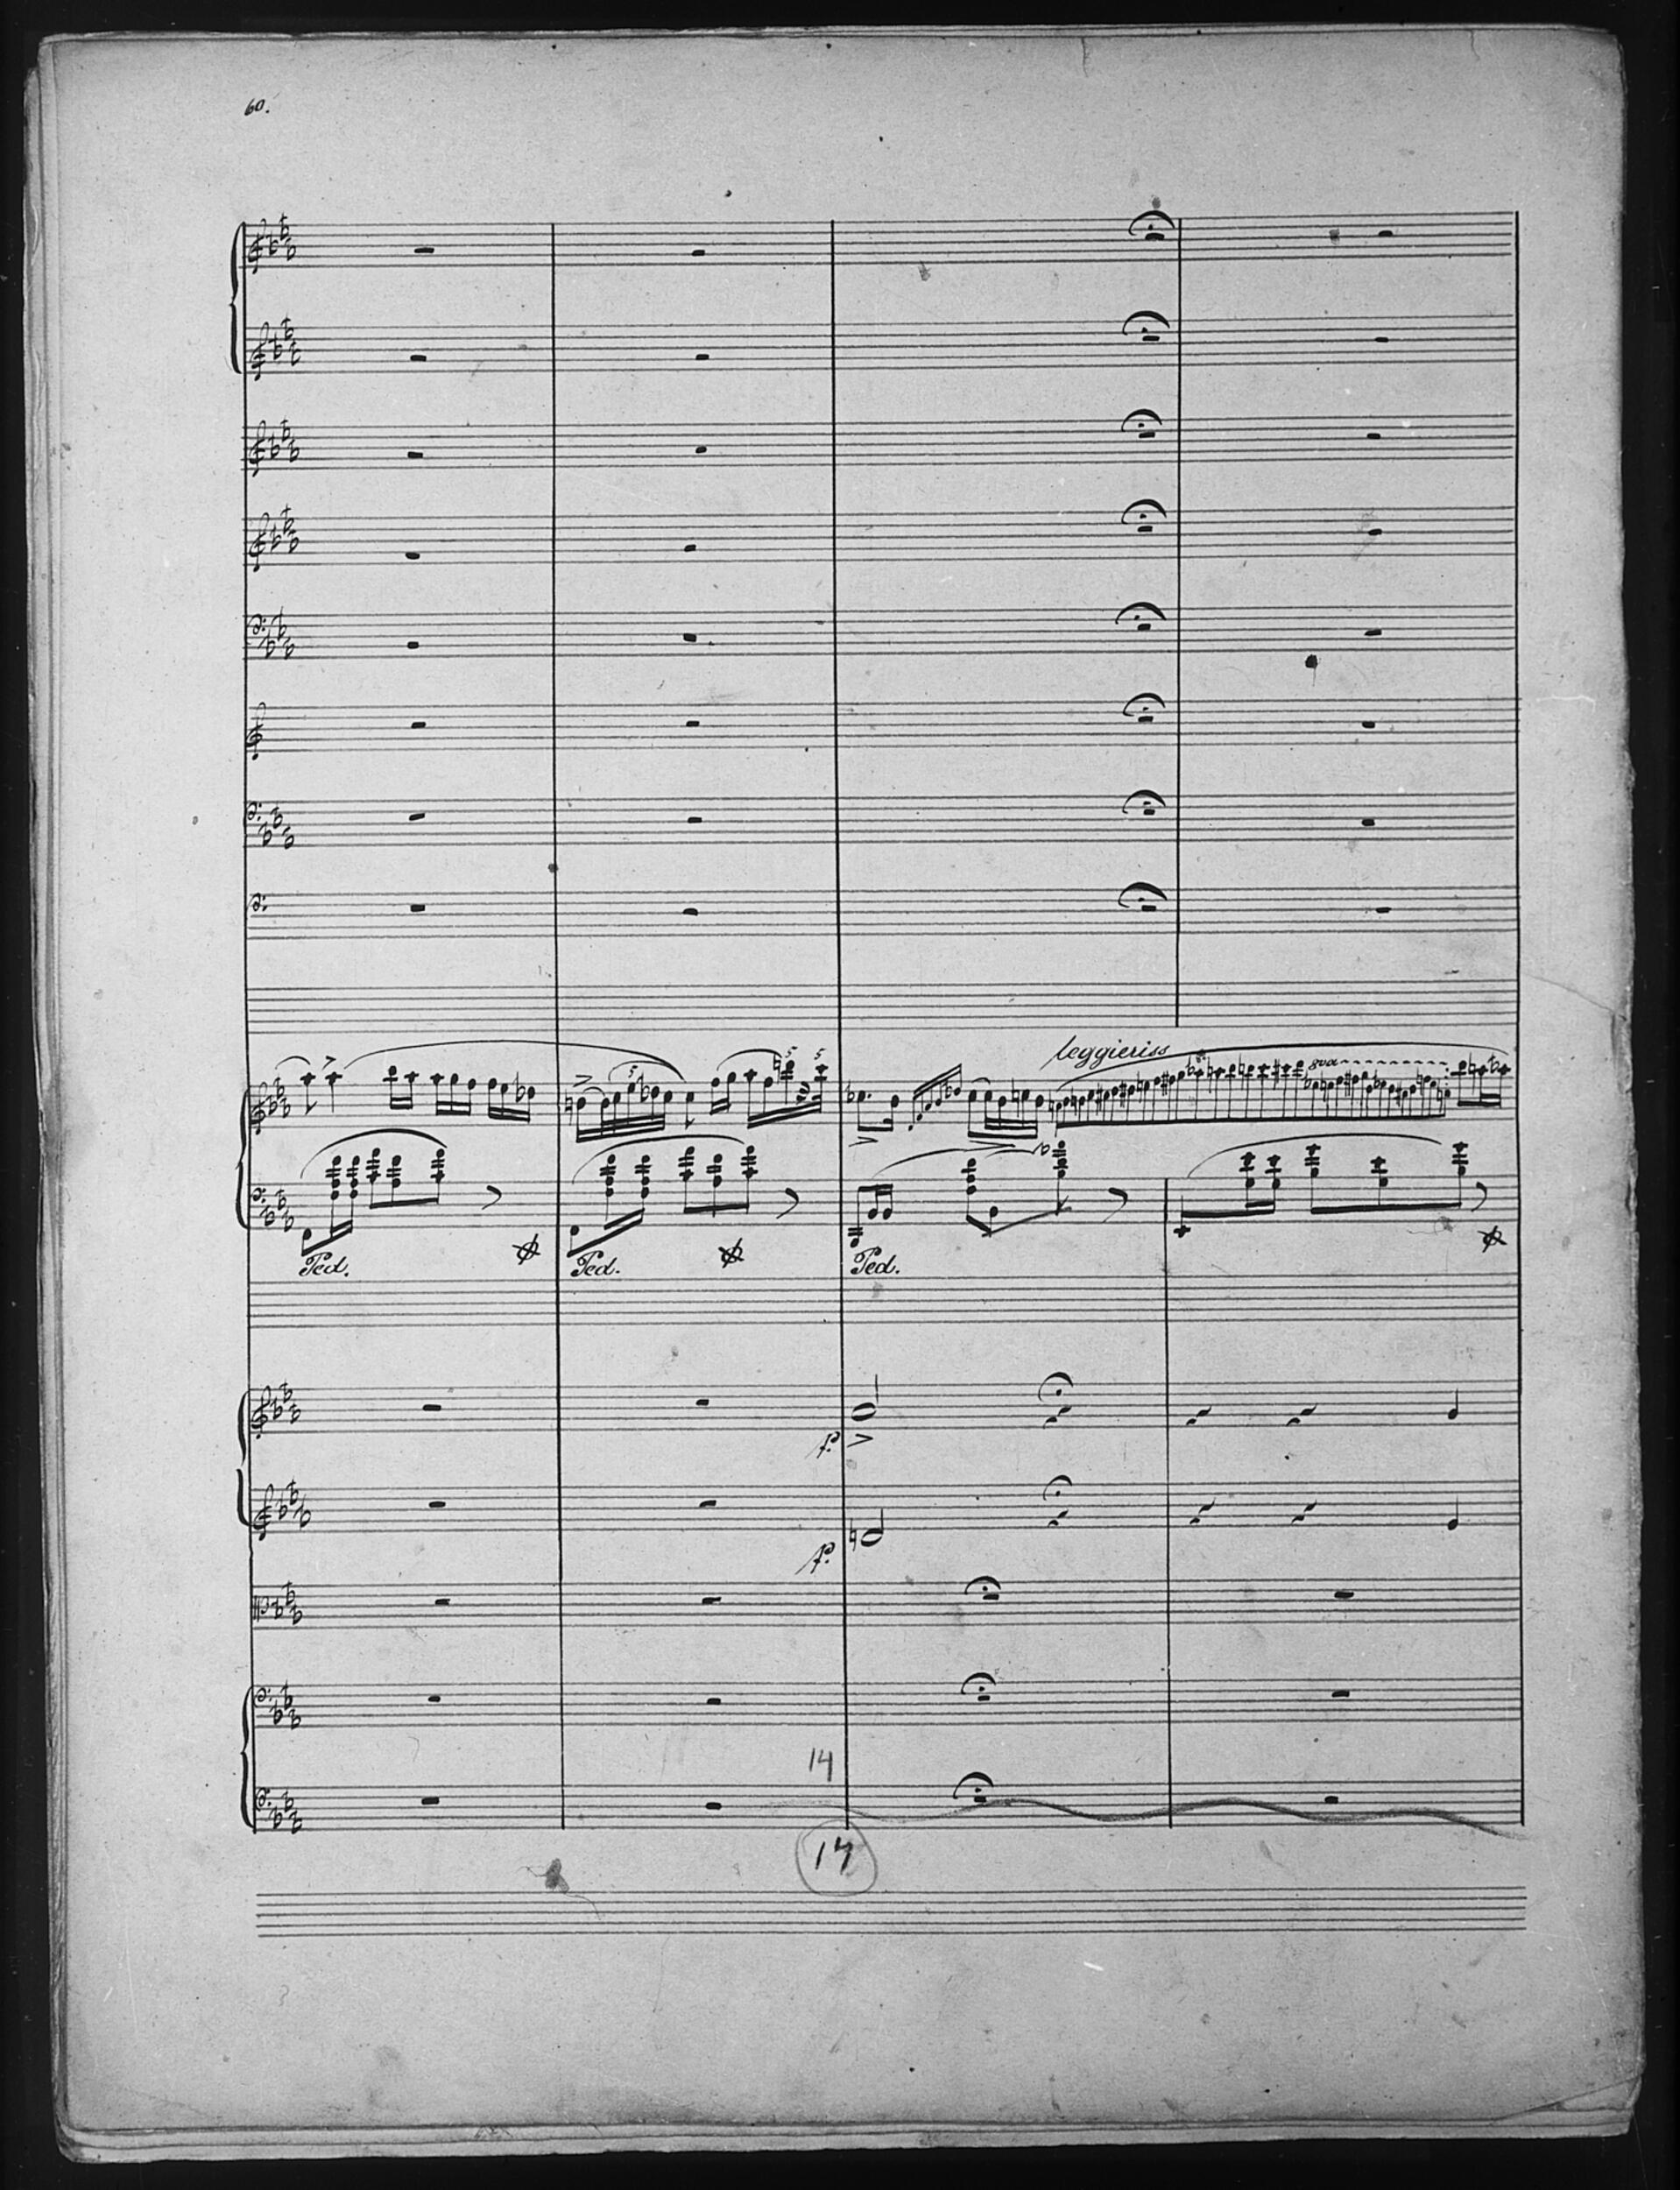 60.
leggieriss
5 5 5 8va
Ped. Ped. Ped.
f.
f.
14
14